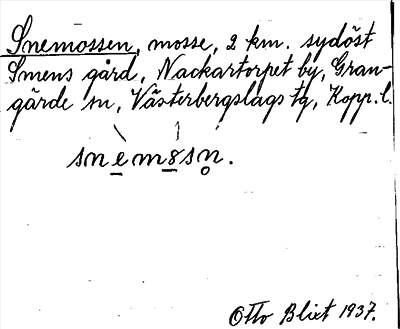 Snemossen, mosse, 2 km. sydöst
Smens gård, Nackartorpet by, Gran-
gärde sn, Västerbergslags tg, Kopp. l.
snem8sn̥.
Otto Blixt 1937.